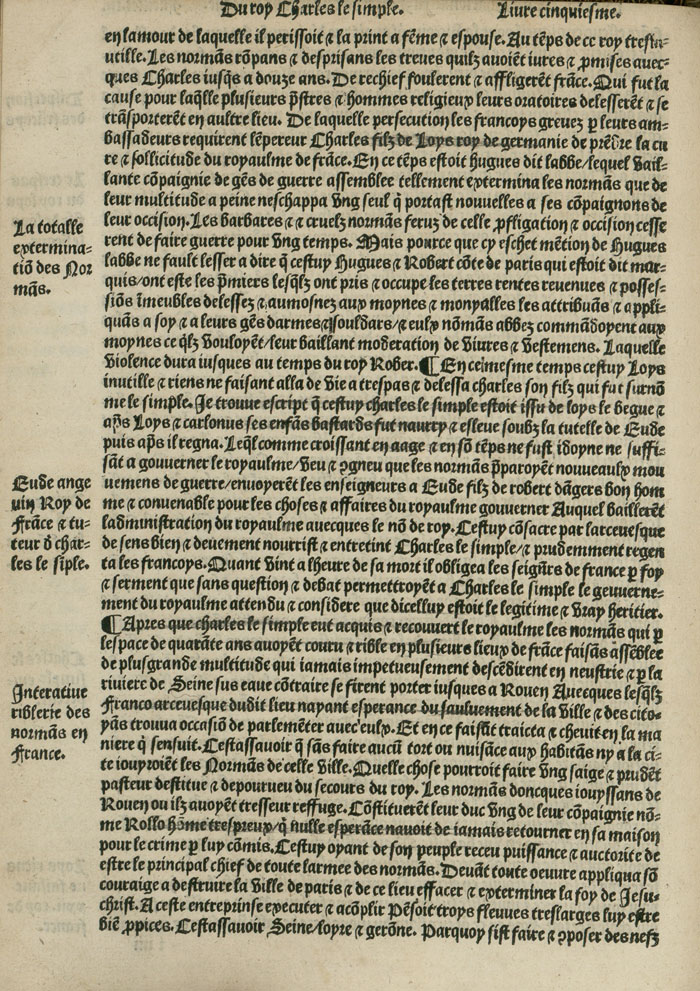 Du roy Charles le simple. Liure cinquiesme.
en lamour de laquelle il perissoit ⁊ la print a fẽme ⁊ espouse. Au tẽps de ce roy tresin-
utille. Les normãs rõpans ⁊ desprisans les treues quilz auoiẽt iurees ⁊ p̃mises auec-
ques Charles iusq̃s a douze ans. De rechief foulerent ⁊ affligerẽt frãce. Qui fut la
cause pour laq̃lle plusieurs p̃stres ⁊ hommes religieux leurs oratoires delesserẽt ⁊ se
trãsporterẽt en aultre lieu. De laquelle persecution les francoys greuez p leurs am-
bassadeurs requirent lẽpereur Charles filz de Loys roy de germanie de prẽdre la cu
re ⁊ sollicitude du royaulme de frãce. En ce tẽps estoit hugues dit labbe/lequel vail-
lante cõpaignie de gẽs de guerre assemblee tellement extermina les normãs que de
leur multitude a peine neschappa vng seul q̃ portast nouuelles a ses cõpaignons de
leur occision. Les barbares ⁊ ⁊ cruelz normãs feruz de celle p̱fligation ⁊ occision cesse
rent de faire guerre pour vng temps. Mais pource que cy eschet mẽtion de Hugues
labbe ne fault lesser a dire q̃ cestuy Hugues ⁊ Robert cõte de paris qui estoit dit mar-
quis/ont este les p̃miers lesq̃lz ont pris ⁊ occupe les terres rentes reuenues ⁊ posses-
siõs ĩmeubles delessez ⁊ aumosnez aux moynes ⁊ monyalles les attribuãs ⁊ appli-
quãs a soy ⁊ a leurs gẽs darmes ⁊ souldars/⁊ eulx nõmãs abbez commãdoyent aux
moynes ce q̃lz vouloyẽt/leur baillant moderation de viures ⁊ vestemens. Laquelle
violence dura iusques au temps du roy Rober. ¶ En ce mesme temps cestuy Loys
inutille ⁊ riens ne faisant alla de vie a trespas ⁊ delessa charles son filz qui fut surnõ
me le simple. Je trouue escript q̃ cestuy charles le simple estoit issu de loys le begue ⁊
ap̃s Loys ⁊ carlonus ses enfãs bastards fut nourry ⁊ esleue soubz la tutelle de Eude
puis ap̃s il regna. Leq̃l comme croissant en aage ⁊ en sõ tẽps ne fust idoyne ne suffi-
sãt a gouuerner le royaulme/veu ⁊ ꝯgneu que les normãs p̃paroyẽt nouueaulx mou
uemens de guerre/enuoyerẽt les enseigneurs a Eude filz de robert dãgers bon hom
me ⁊ conuenable pour les choses ⁊ affaires du royaulme gouuerner Auquel baillerẽt
ladministration du royaulme auecques le nõ de roy. Cestuy cõsacre par larceuesque
de sens bien ⁊ deuement nourrist ⁊ entretint Charles le simple/⁊ prudemment regen
ta les francoys. Quant vint a lheure de sa mort il obligea les seignr̃s de france p foy
⁊ serment que sans question ⁊ debat permettroyẽt a Charles le simple le geuuerne-
ment du royaulme attendu ⁊ considere que dicelluy estoit le legitime ⁊ vray heritier.
¶ Apres que charles le simple eut acquis ⁊ recouuert le royaulme les normãs qui p
lespace de quarãte ans auoyẽt couru ⁊ rible en plusieurs lieux de frãce faisãs assẽblee
de plusgrande multitude qui iamais impetueusement descẽdirent en neustrie ⁊ p la
riuiere de Seine sus eaue cõtraire se firent porter iusques a Rouen Auecques lesq̃lz
Franco arceuesque dudit lieu nayant esperance du sauluement de la ville ⁊ des cito-
yãs trouua occasiõ de parlemẽter auec eulx. Et en ce faisãt traicta ⁊ cheuit en la ma
niere q̃ sensuit. Cestassauoir q̃ sãs faire aucũ tort ou nuisãce aux habitãs ny a la ci-
te iouyroiẽt les Normãs de celle ville. Quelle chose pourroit faire vng saige ⁊ prudẽt
pasteur destitue ⁊ depourueu du secours du roy. Les normãs doncques iouyssans de
Rouen ou ilz auoyẽt tresseur reffuge. Cõstituerẽt leur duc vng de leur cõpaignie nõ-
me Rollo hõme trespreux/q̃ nulle esperãce nauoit de iamais retourner en sa maison
pour le crime p luy cõmis. Cestuy oyant de son peuple receu puissance ⁊ auctorite de
estre le principal chief de toute larmee des normãs. Deuãt toute oeuure appliqua sõ
couraige a destruire la ville de paris ⁊ de ce lieu effacer ⁊ exterminer la foy de Jesu-
christ. A ceste entreprinse executer ⁊ acõplir Pẽsoit troys fleuues treslarges luy estre
biẽ p̱pices. Cestassauoir Seine/loyre ⁊ gerõne. Parquoy fist faire ⁊ ꝯposer des nefz
La totalle
extermina-
tiõ des Nor
mãs.
Eude ange
uin Roy de
Frãce ⁊ tu-
teur d̃ char-
les le siple.
Interatiue
riblerie des
normãs en
France.